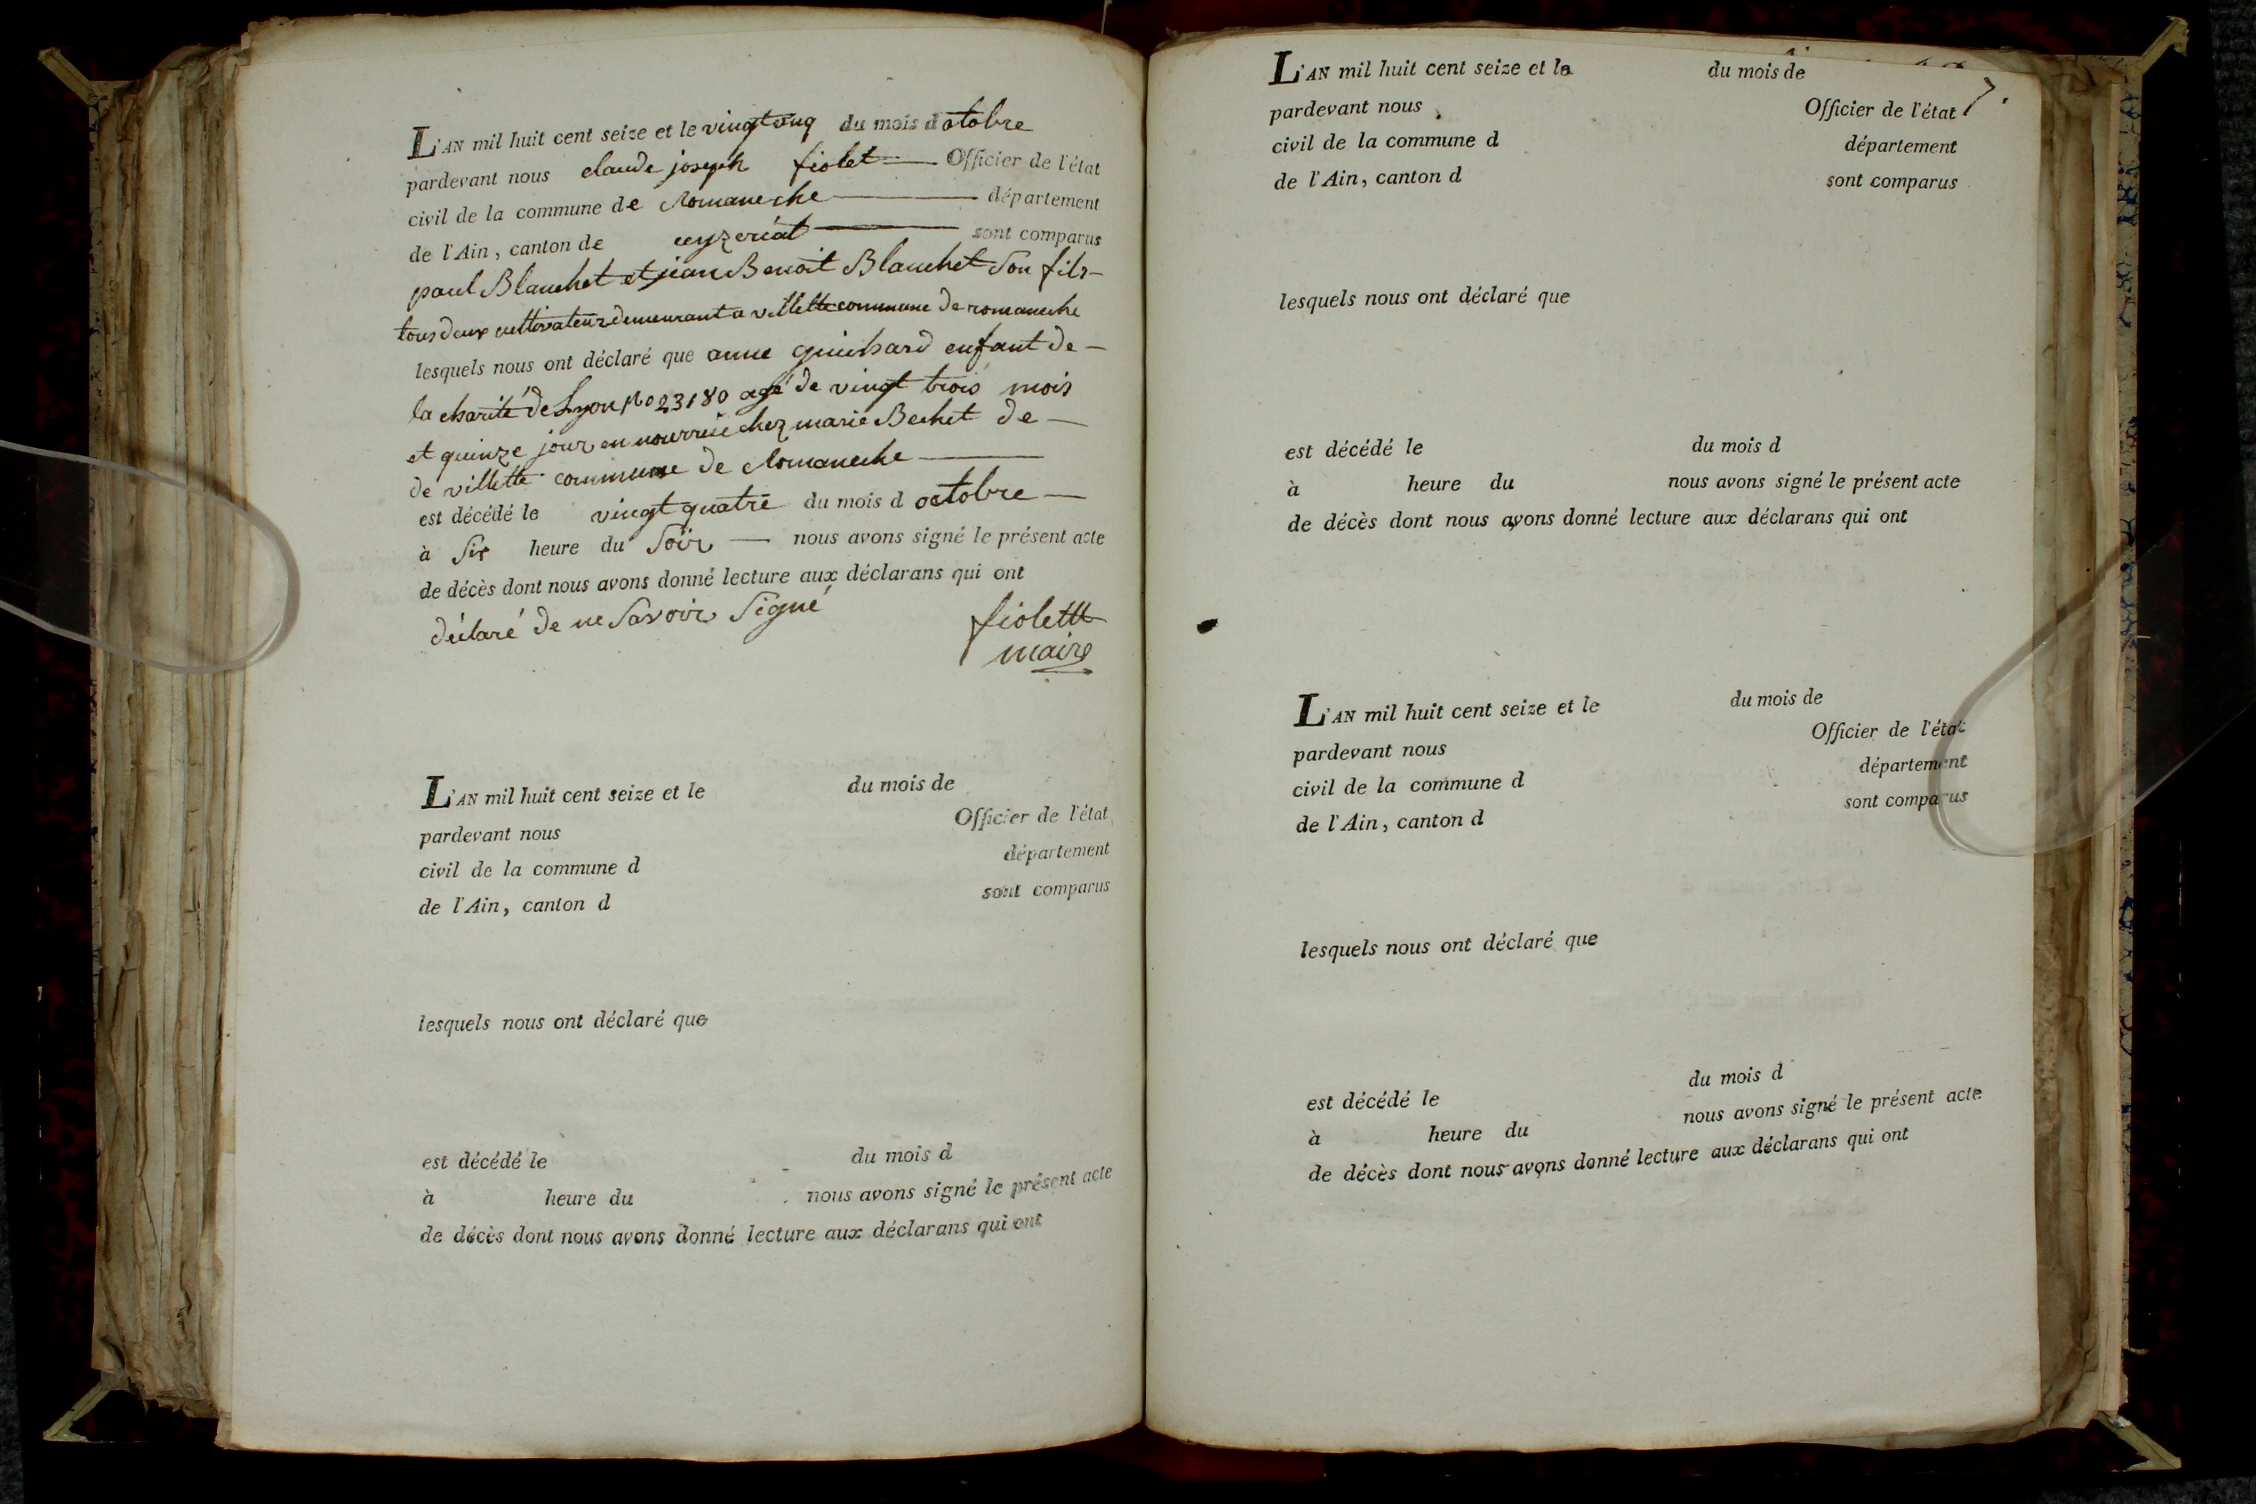 L'AN mil huit cent seize et le vingt cinq du mois d octobre
pardevant nous claude joseph fiolet Officier de l'état
civil de la commune de Romaneche département
de l'Ain, canton de ceyzeriat sont comparus
paul Blanchet et jean Benoit Blanchet son fils
tous deux cultivateur demeurant a villette commune de romaneche
lesquels nous ont déclaré que anne guichard enfant de
la charité de Lyon No 23180 agé de vingt trois mois
et quinze jour en nourrice chez marie Bechet de
de villette commune de Romaneche
est décédé le vingt quatre du mois d octobre
à six heure du soir nous avons signé le présent acte
de décès dont nous avons donné lecture aux déclarans qui ont
déclaré de ne savoir signé
fiolett
maire
L'AN mil huit cent seize et le du mois de
pardevant nous Officier de l'état
civil de la commune d département
de l'Ain, canton d sont comparus
lesquels nous ont déclaré que
est décédé le du mois d
à heure du nous avons signé le présent acte
de décès dont nous avons donné lecture aux déclarans qui ont
7.
L'AN mil huit cent seize et le du mois de
pardevant nous Officier de l'état
civil de la commune d département
de l'Ain, canton d sont comparus
lesquels nous ont déclaré que
est décédé le du mois d
à heure du nous avons signé le présent acte
de décès dont nous avons donné lecture aux déclarans qui ont
L'AN mil huit cent seize et le du mois de
pardevant nous Officier de l'état
civil de la commune d département
de l'Ain, canton d sont comparus
lesquels nous ont déclaré que
est décédé le du mois d
à heure du nous avons signé le présent acte
de décès dont nous avons donné lecture aux déclarans qui ont